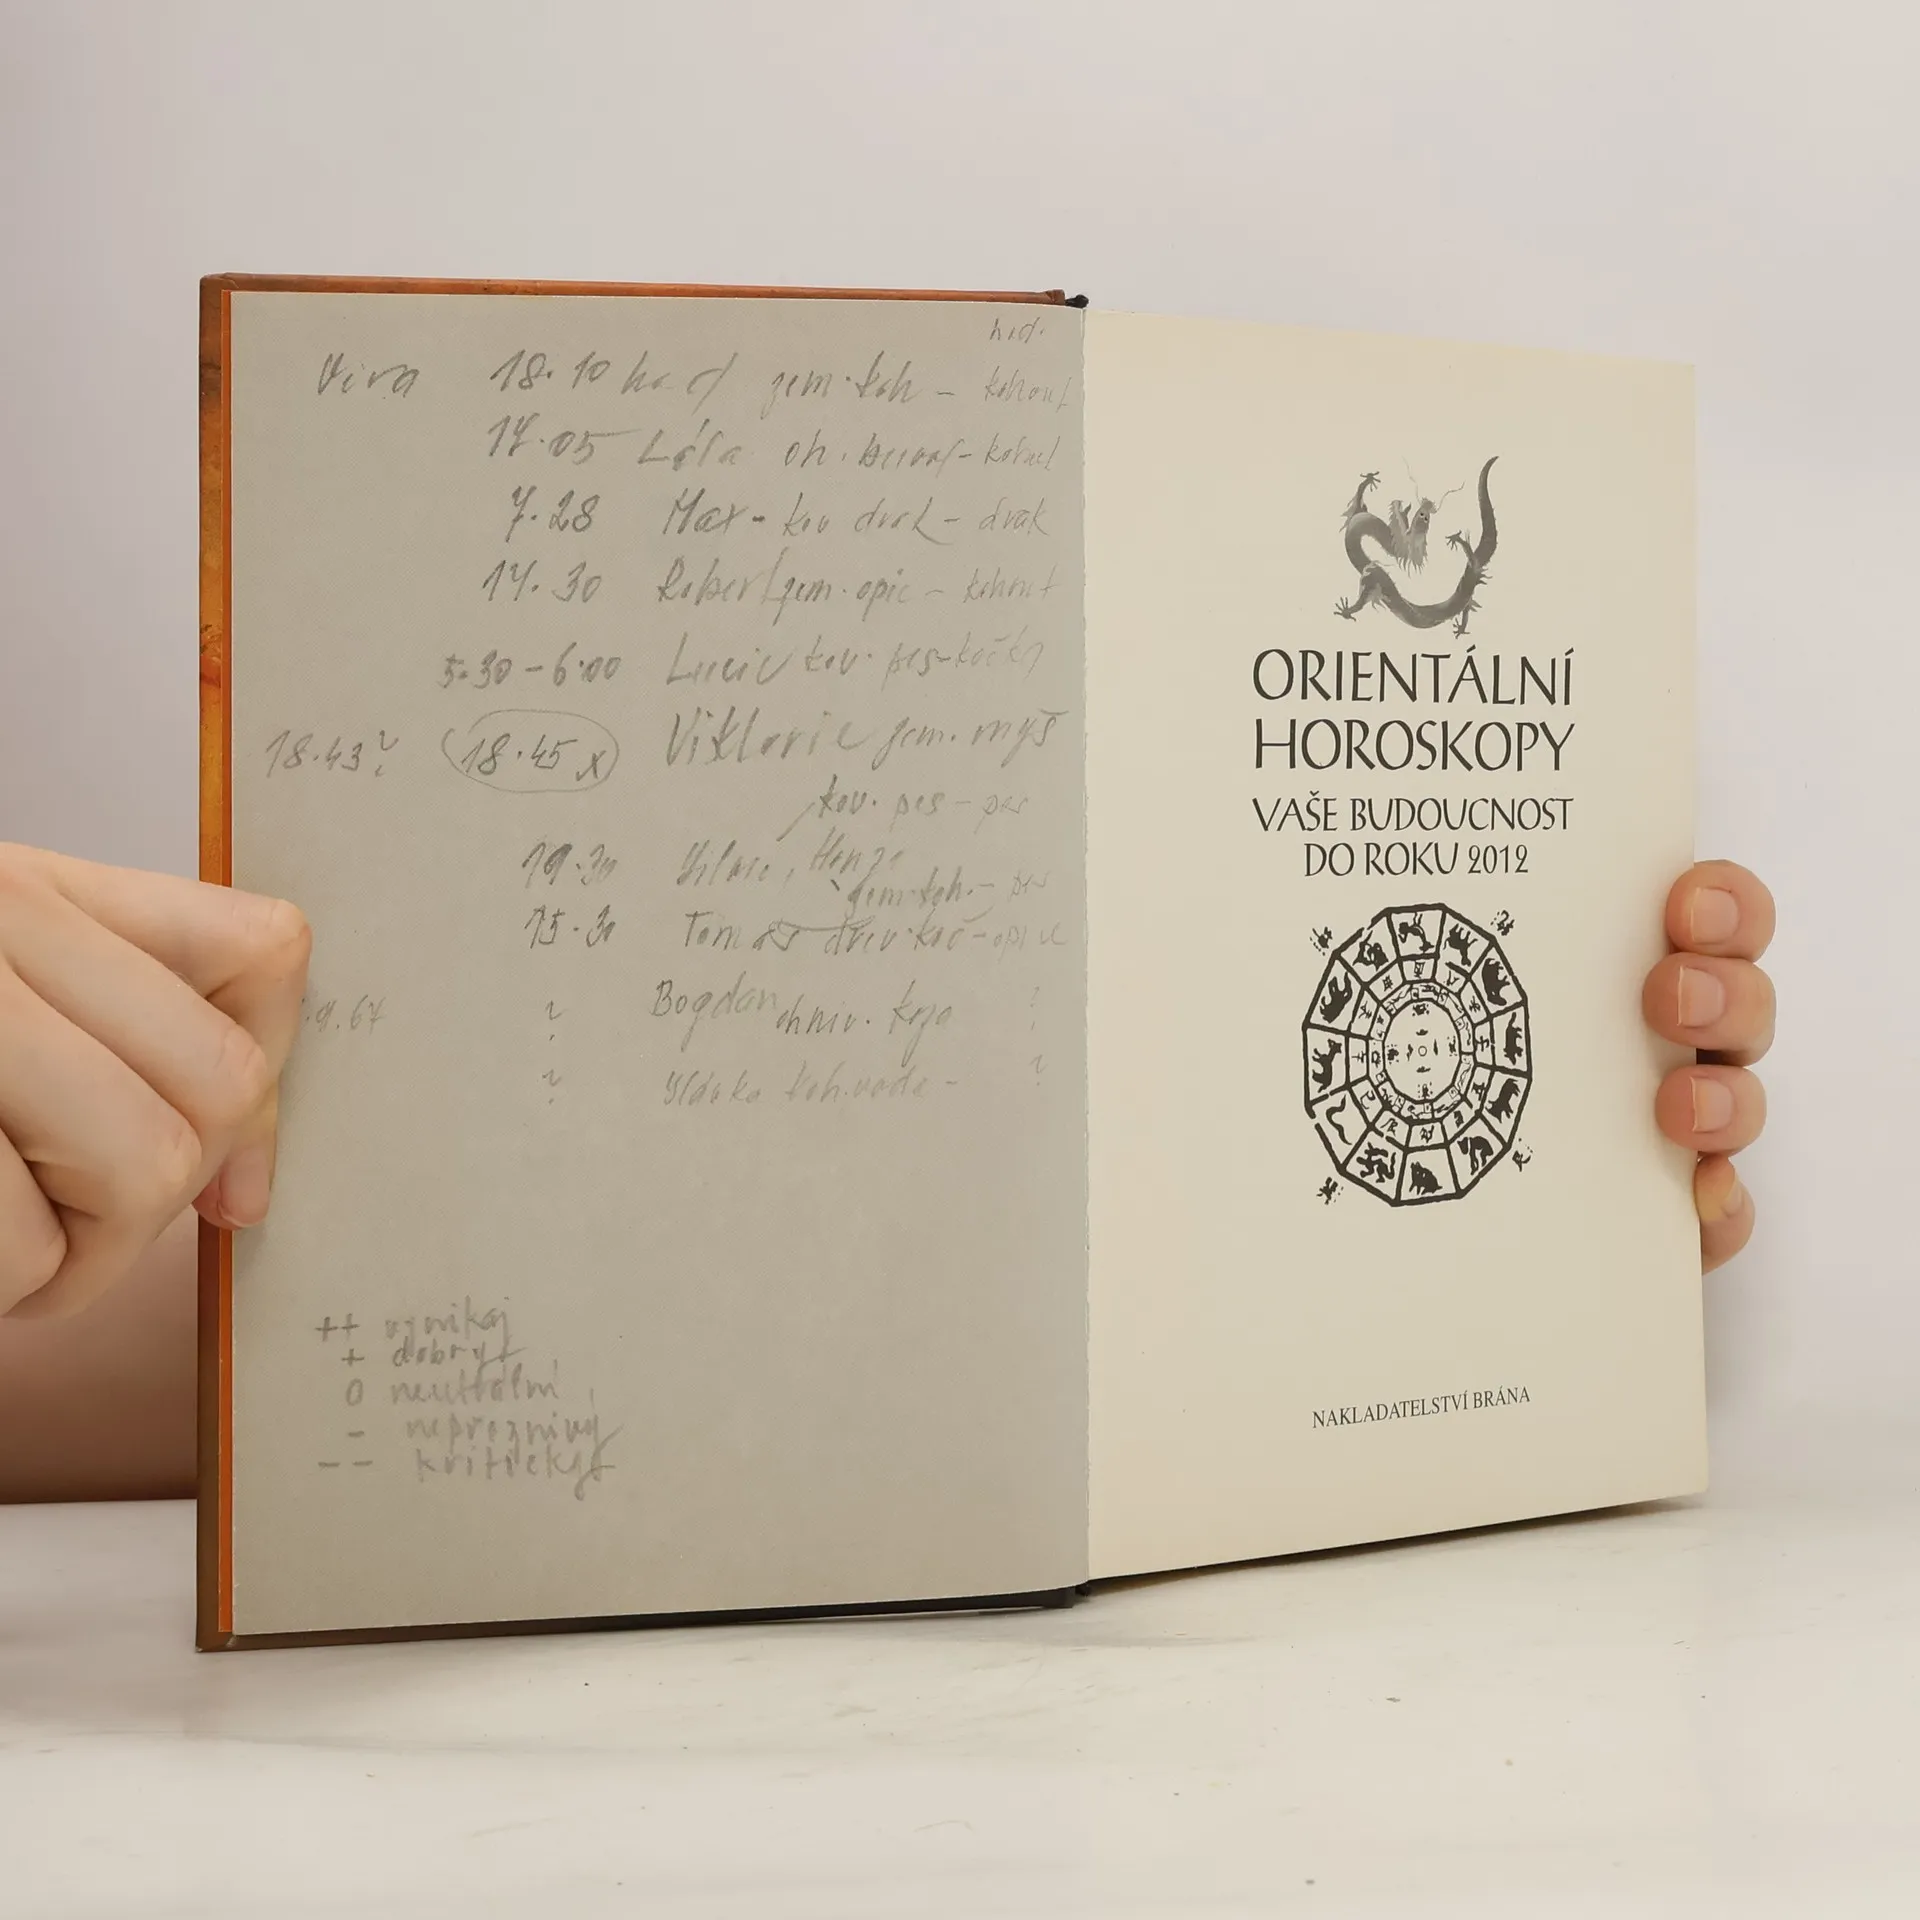 18.10 had zem. koh - kohout
14.05 oh.
7.28 Max - kov drak - drak
14.30 Robert zem. opic - kohout
5.30 - 6.00 Lucie kov. pes-kočky
18.43? 18.45 x Viktorie zem. myš
kov. pes - pes
19.30
zem. koh. - pes
15.30 Tomáš dřev. koč - opice
9.67 ? Bogdan ohniv. koza ?
? koh. voda - ?
++ vynikaj
+ dobrý
0 neutrální
- nepřoznivý
-- kritický
ORIENTÁLNÍ
HOROSKOPY
VAŠE BUDOUCNOST
DO ROKU 2012
NAKLADATELSTVÍ BRÁNA